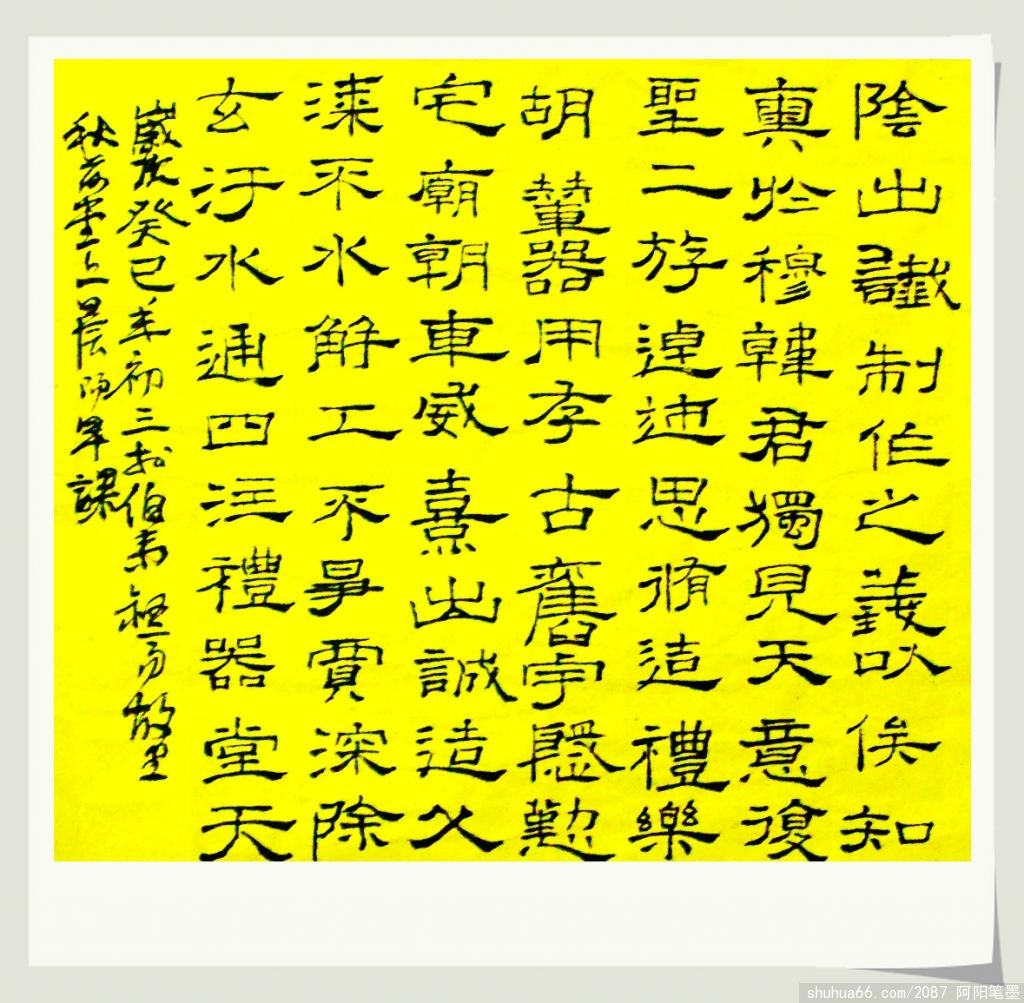 陰出讖制作之義以俟知
奧於穆韓君獨見天意復
聖二族逴越思脩造禮樂
胡輦器用存古舊宇慇懃
宅廟朝車威熹出誠造
漆不水解工不爭賈深除
玄汙水通四注禮器堂天
歲次癸巳年初三於伯故里
秋堂上晨陽早課
shuhua66.com/2087 阿阳笔墨